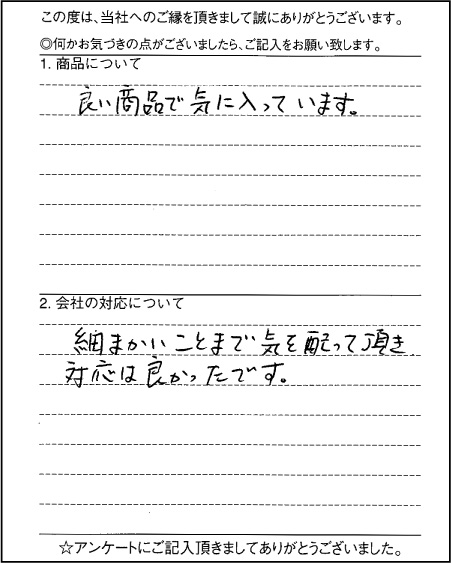 この度は、当社へのご縁を頂きまして誠にありがとうございます。
◎何かお気づきの点がございましたら、ご記入をお願い致します。
1. 商品について
良い商品で気に入っています。
2. 会社の対応について
細まかいことまで気を配って頂き
対応は良かったです。
☆アンケートにご記入頂きましてありがとうございました。